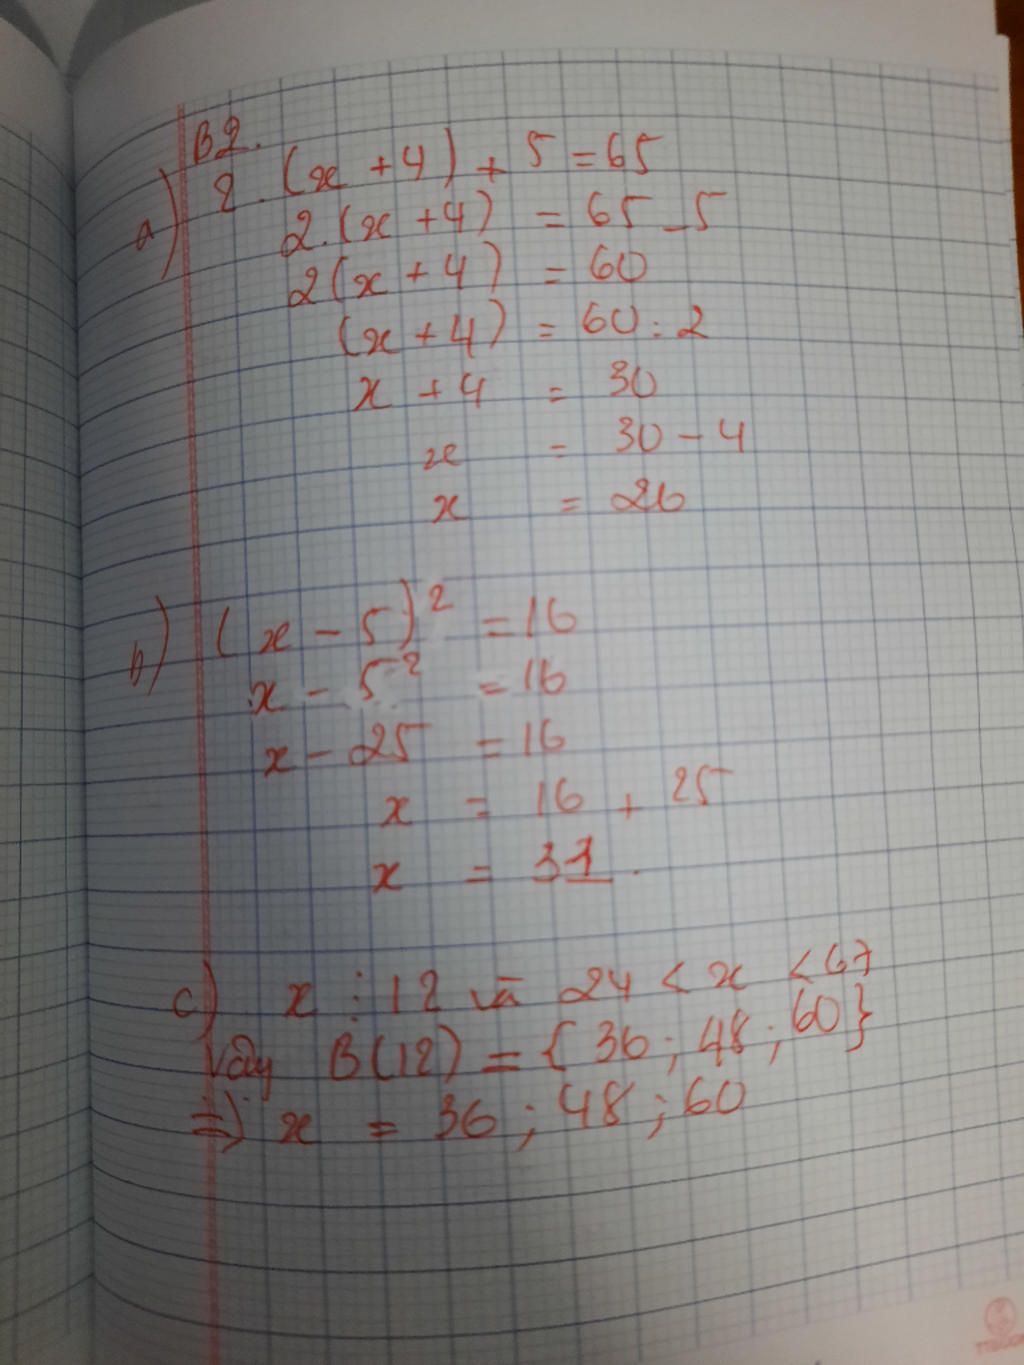 B2.
a) 2.(x + 4) + 5 = 65
2.(x + 4) = 65 - 5
2(x + 4) = 60
(x + 4) = 60 : 2
x + 4 = 30
x = 30 - 4
x = 26
b) (x - 5)² = 16
x - 5² = 16
x - 25 = 16
x = 16 + 25
x = 31.
c) x ⋮ 12 và 24 < x < 67
Vậy B(12) = {36 ; 48 ; 60}
=> x = 36 ; 48 ; 60